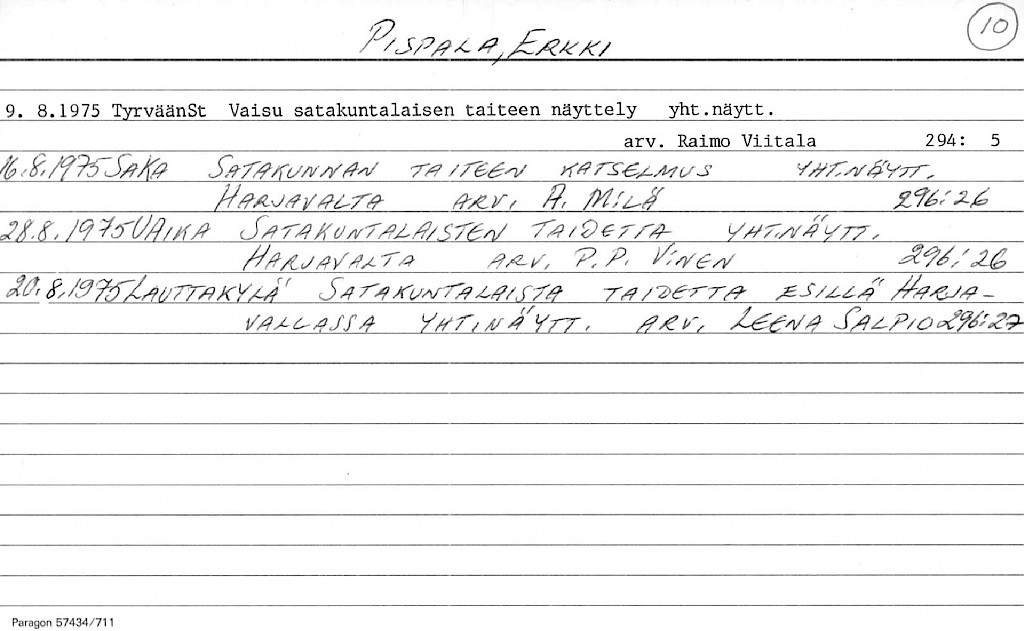 PISPALA, ERKKI
10
9. 8.1975 TyrväänSt Vaisu satakuntalaisen taiteen näyttely yht.näytt.
arv. Raimo Viitala 294: 5
16.8.1975 SAKA SATAKUNNAN TAITEEN KATSELMUS YHT.NÄYTT.
HARJAVALTA ARV. A. MILÄ 296:26
28.8.1975 UAIKA SATAKUNTALAISTEN TAIDETTA YHT.NÄYTT.
HARJAVALTA ARV. P.P. VINEN 296:26
20.8.1975 LAUTTAKYLÄ SATAKUNTALAISTA TAIDETTA ESILLÄ HARJA-
VALLASSA YHT.NÄYTT. ARV. LEENA SALPIO 296:27
Paragon 57434/711